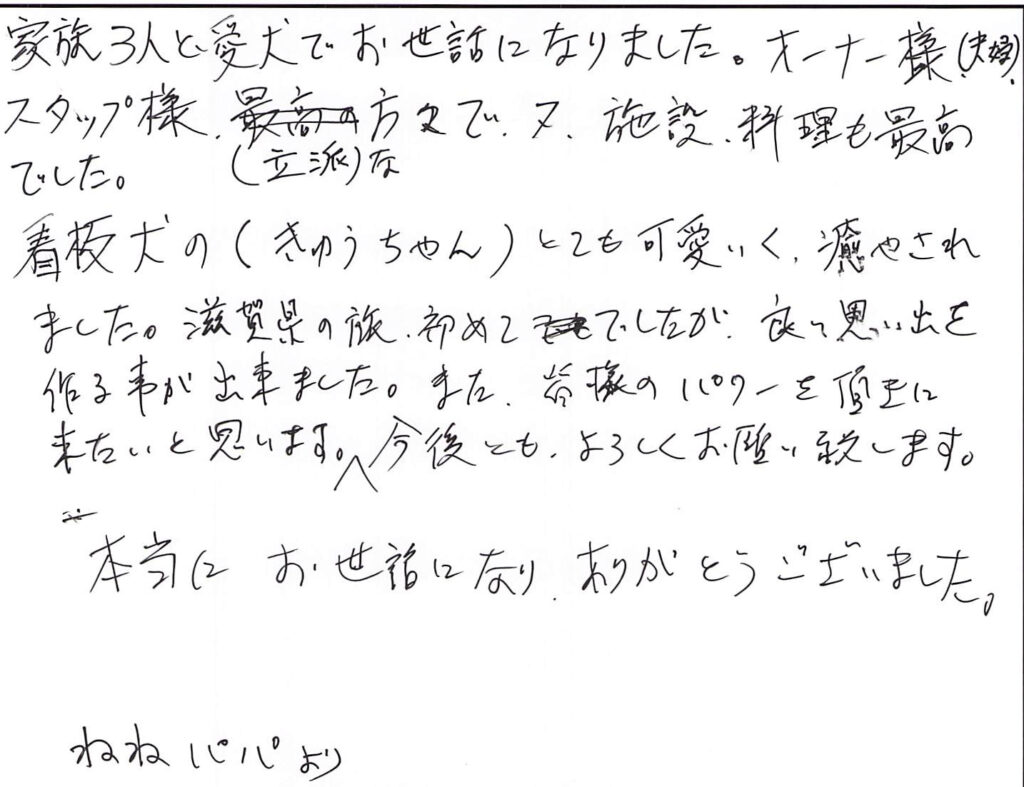 家族3人と愛犬でお世話になりました。オーナー様(夫婦)
スタップ様、最高の方々で、又、施設、料理も最高
でした。 (立派)な
看板犬の(きゅうちゃん)とても可愛いく、癒やされ
ました。滋賀県の旅、初めてでしたが、良い思い出を
作る事が出来ました。また、皆様のパワーを頂きに
来たいと思います。今後とも、よろしくお願い致します。
本当に お世話になり、ありがとうございました。
ねねパパより